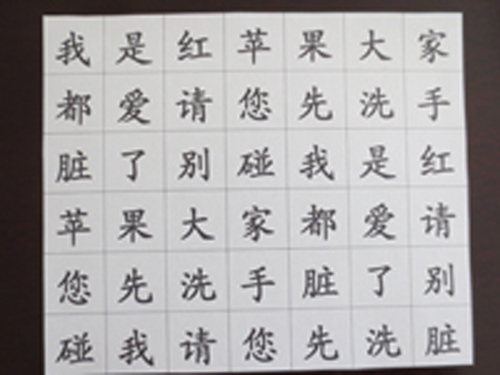 我是红苹果大家
都爱请您先洗手
脏了别碰我是红
苹果大家都爱请
您先洗手脏了别
碰我请您先洗脏